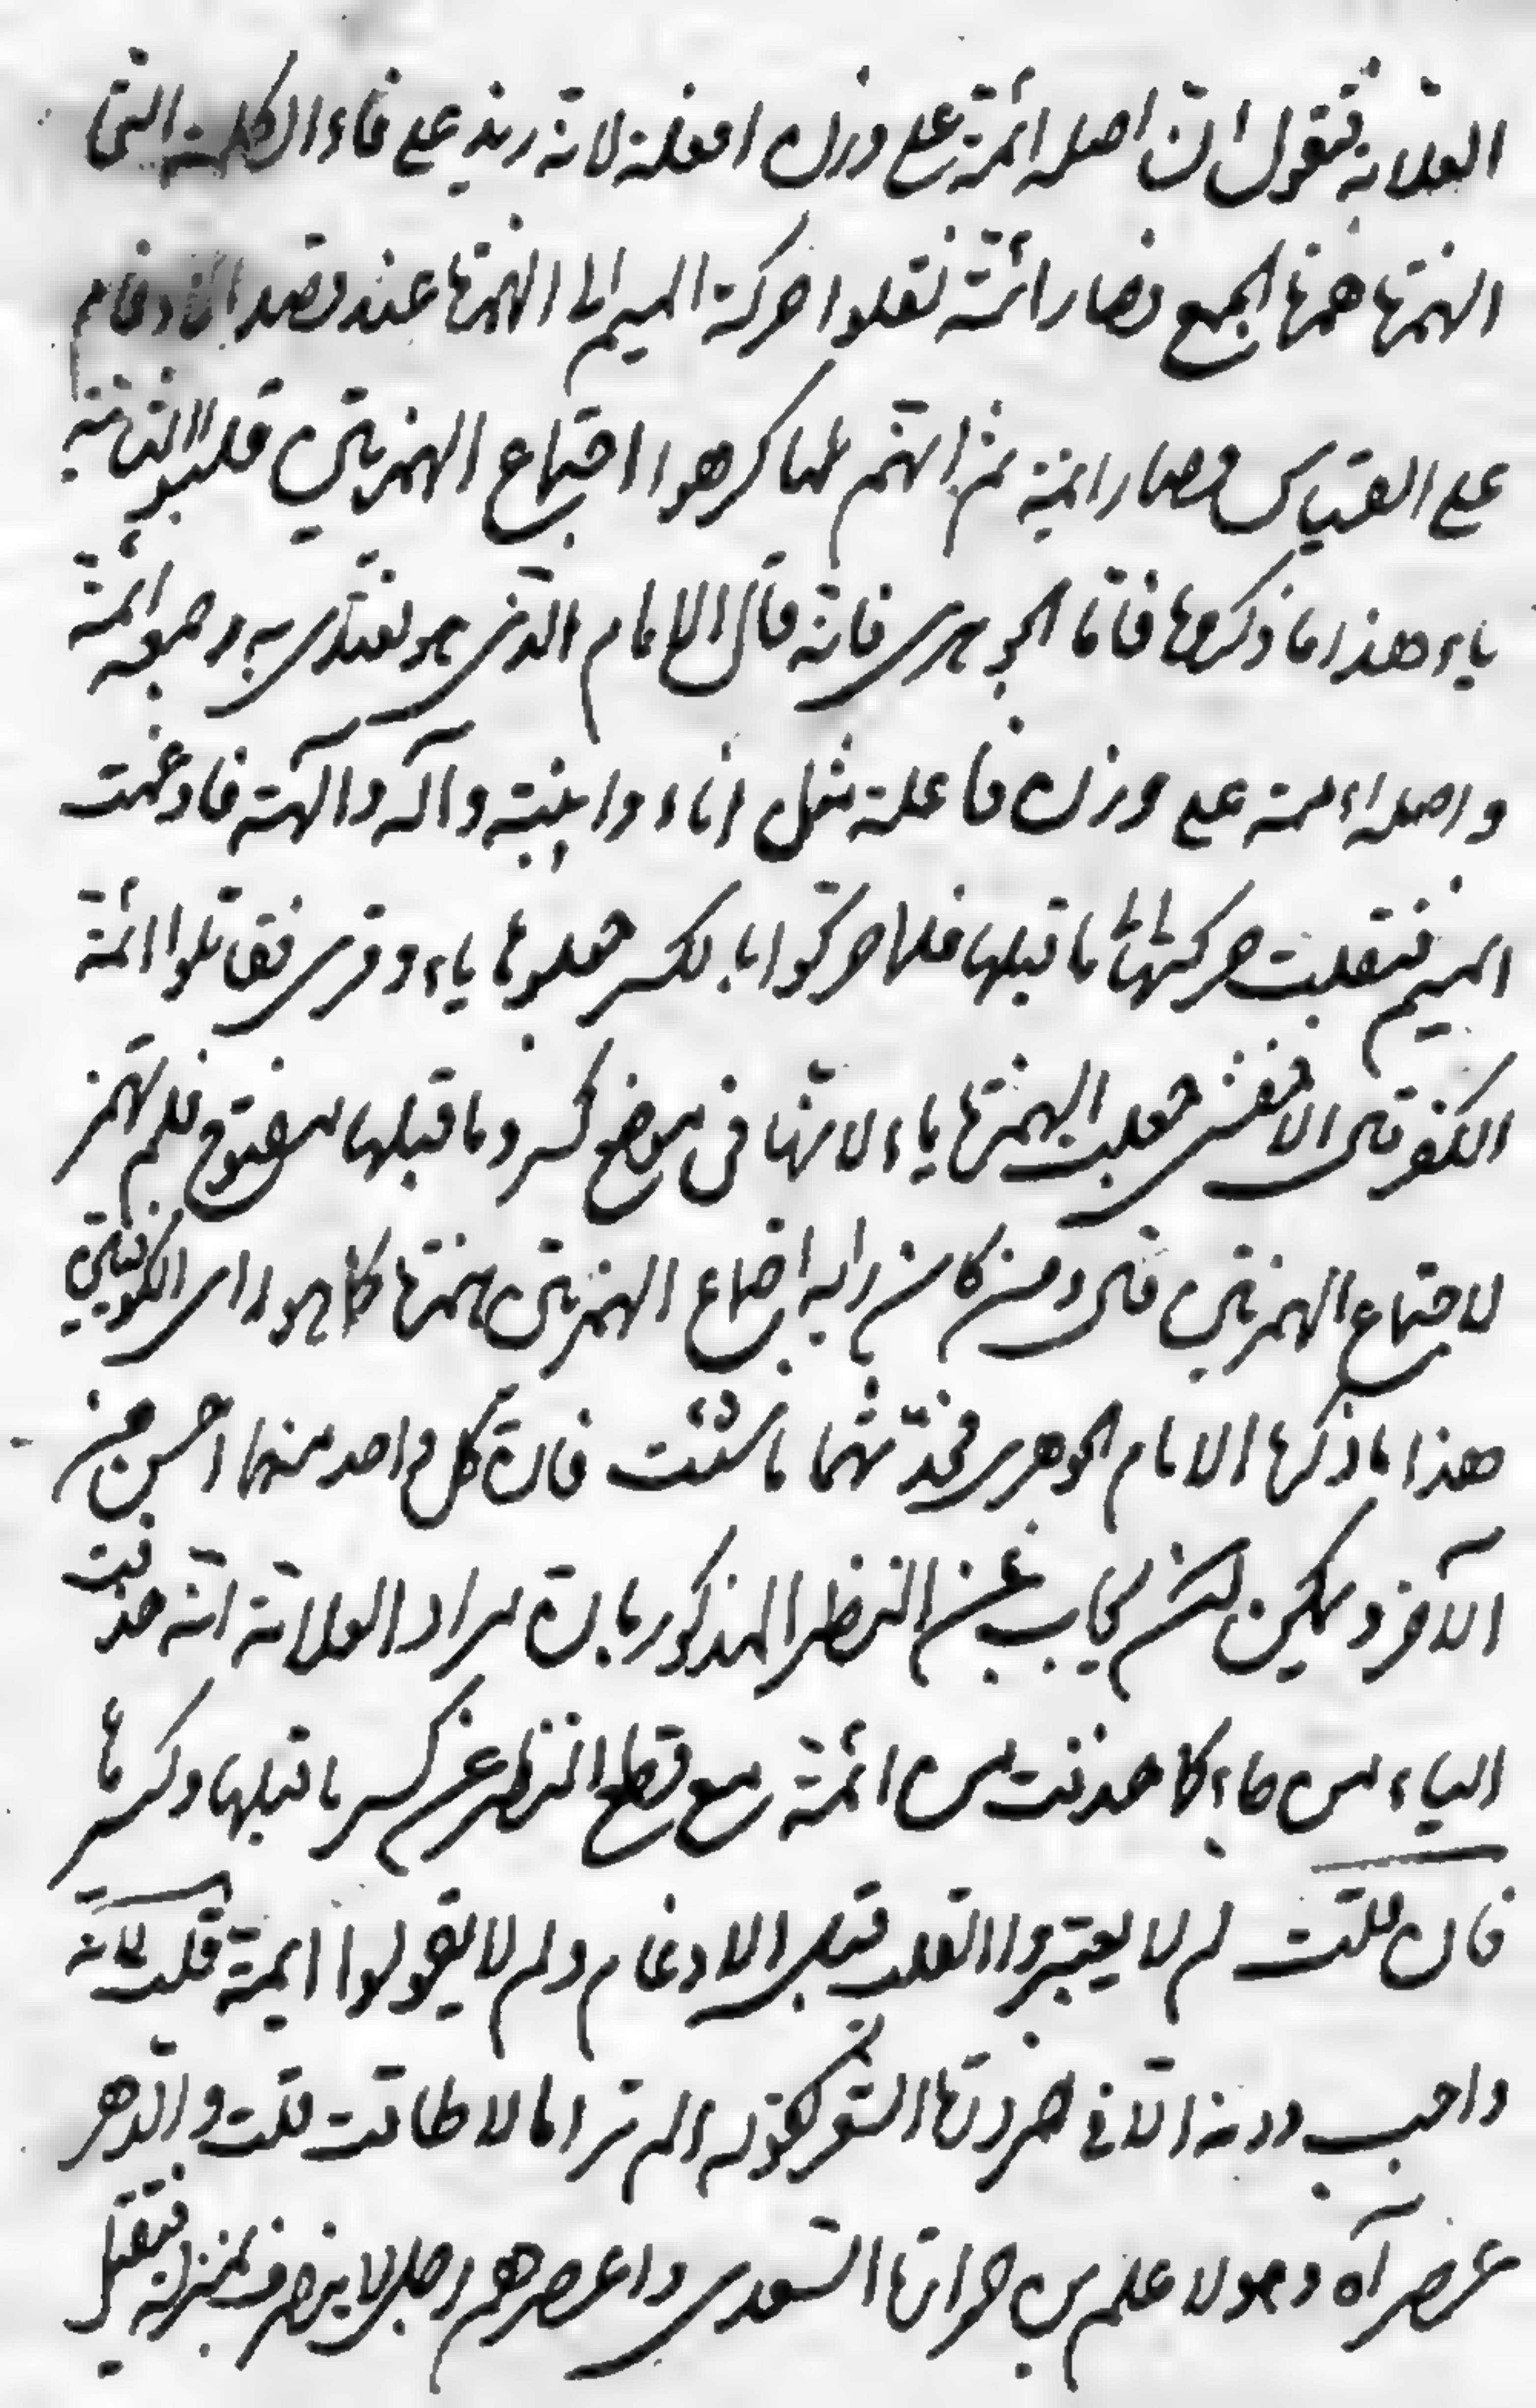 العلامة فنقول ان اصله ائمة على وزن افعلة لانه زيد على فاء الكلمة التى
الهمزة همزة الجمع فصار ائممة نقلوا حركة الميم الى الهمزة عند قصد الادغام
على القياس فصار ائمة ثم انهم لما كرهوا اجتماع الهمزتين قلبوا الثانية
ياء هذا ما ذكره فاما الجوهرى فانه قال الامام الذى هو يقتدى به وجمعه ائمة
واصله اءممة على وزن فاعلة مثل اناء وانية وآله وآلهة فادغمت
الميم فنقلت حركتها الى ما قبلها فلما حركوا بالكسر جعلوها ياء وقرئ فقاتلوا ائمة
الكفر قال الاخفش جعلت الهمزة ياء لانها فى موضع كسر وما قبلها مفتوح فلم تهمز
لاجتماع الهمزتين قال ومن كان من رأيه اجتماع الهمزتين همزة كما هو رأى الكوفيين
هذا ما ذكره الامام الجوهرى فخذ منهما ما شئت فان كل واحد منهما احسن من
الآخر ويمكن ان يجاب عن النظر المذكور بان مراد العلامة انه حذفت
الياء من جاء كما حذفت من ائمة مع قطع النظر عن كسر ما قبلها وكسرها
فان قلت لم لا يعتبروا القلب قبل الادغام ولم لا يقولوا ايمة قلت لانه
واجب دونه الا فى ضرورة الشعر كقوله الم تر ما لاقيت والدهر
عصر آه وهو لا علم بن جرادة السعدى واعصر هم رجل لا ينصرف بمنزلة فيقتل